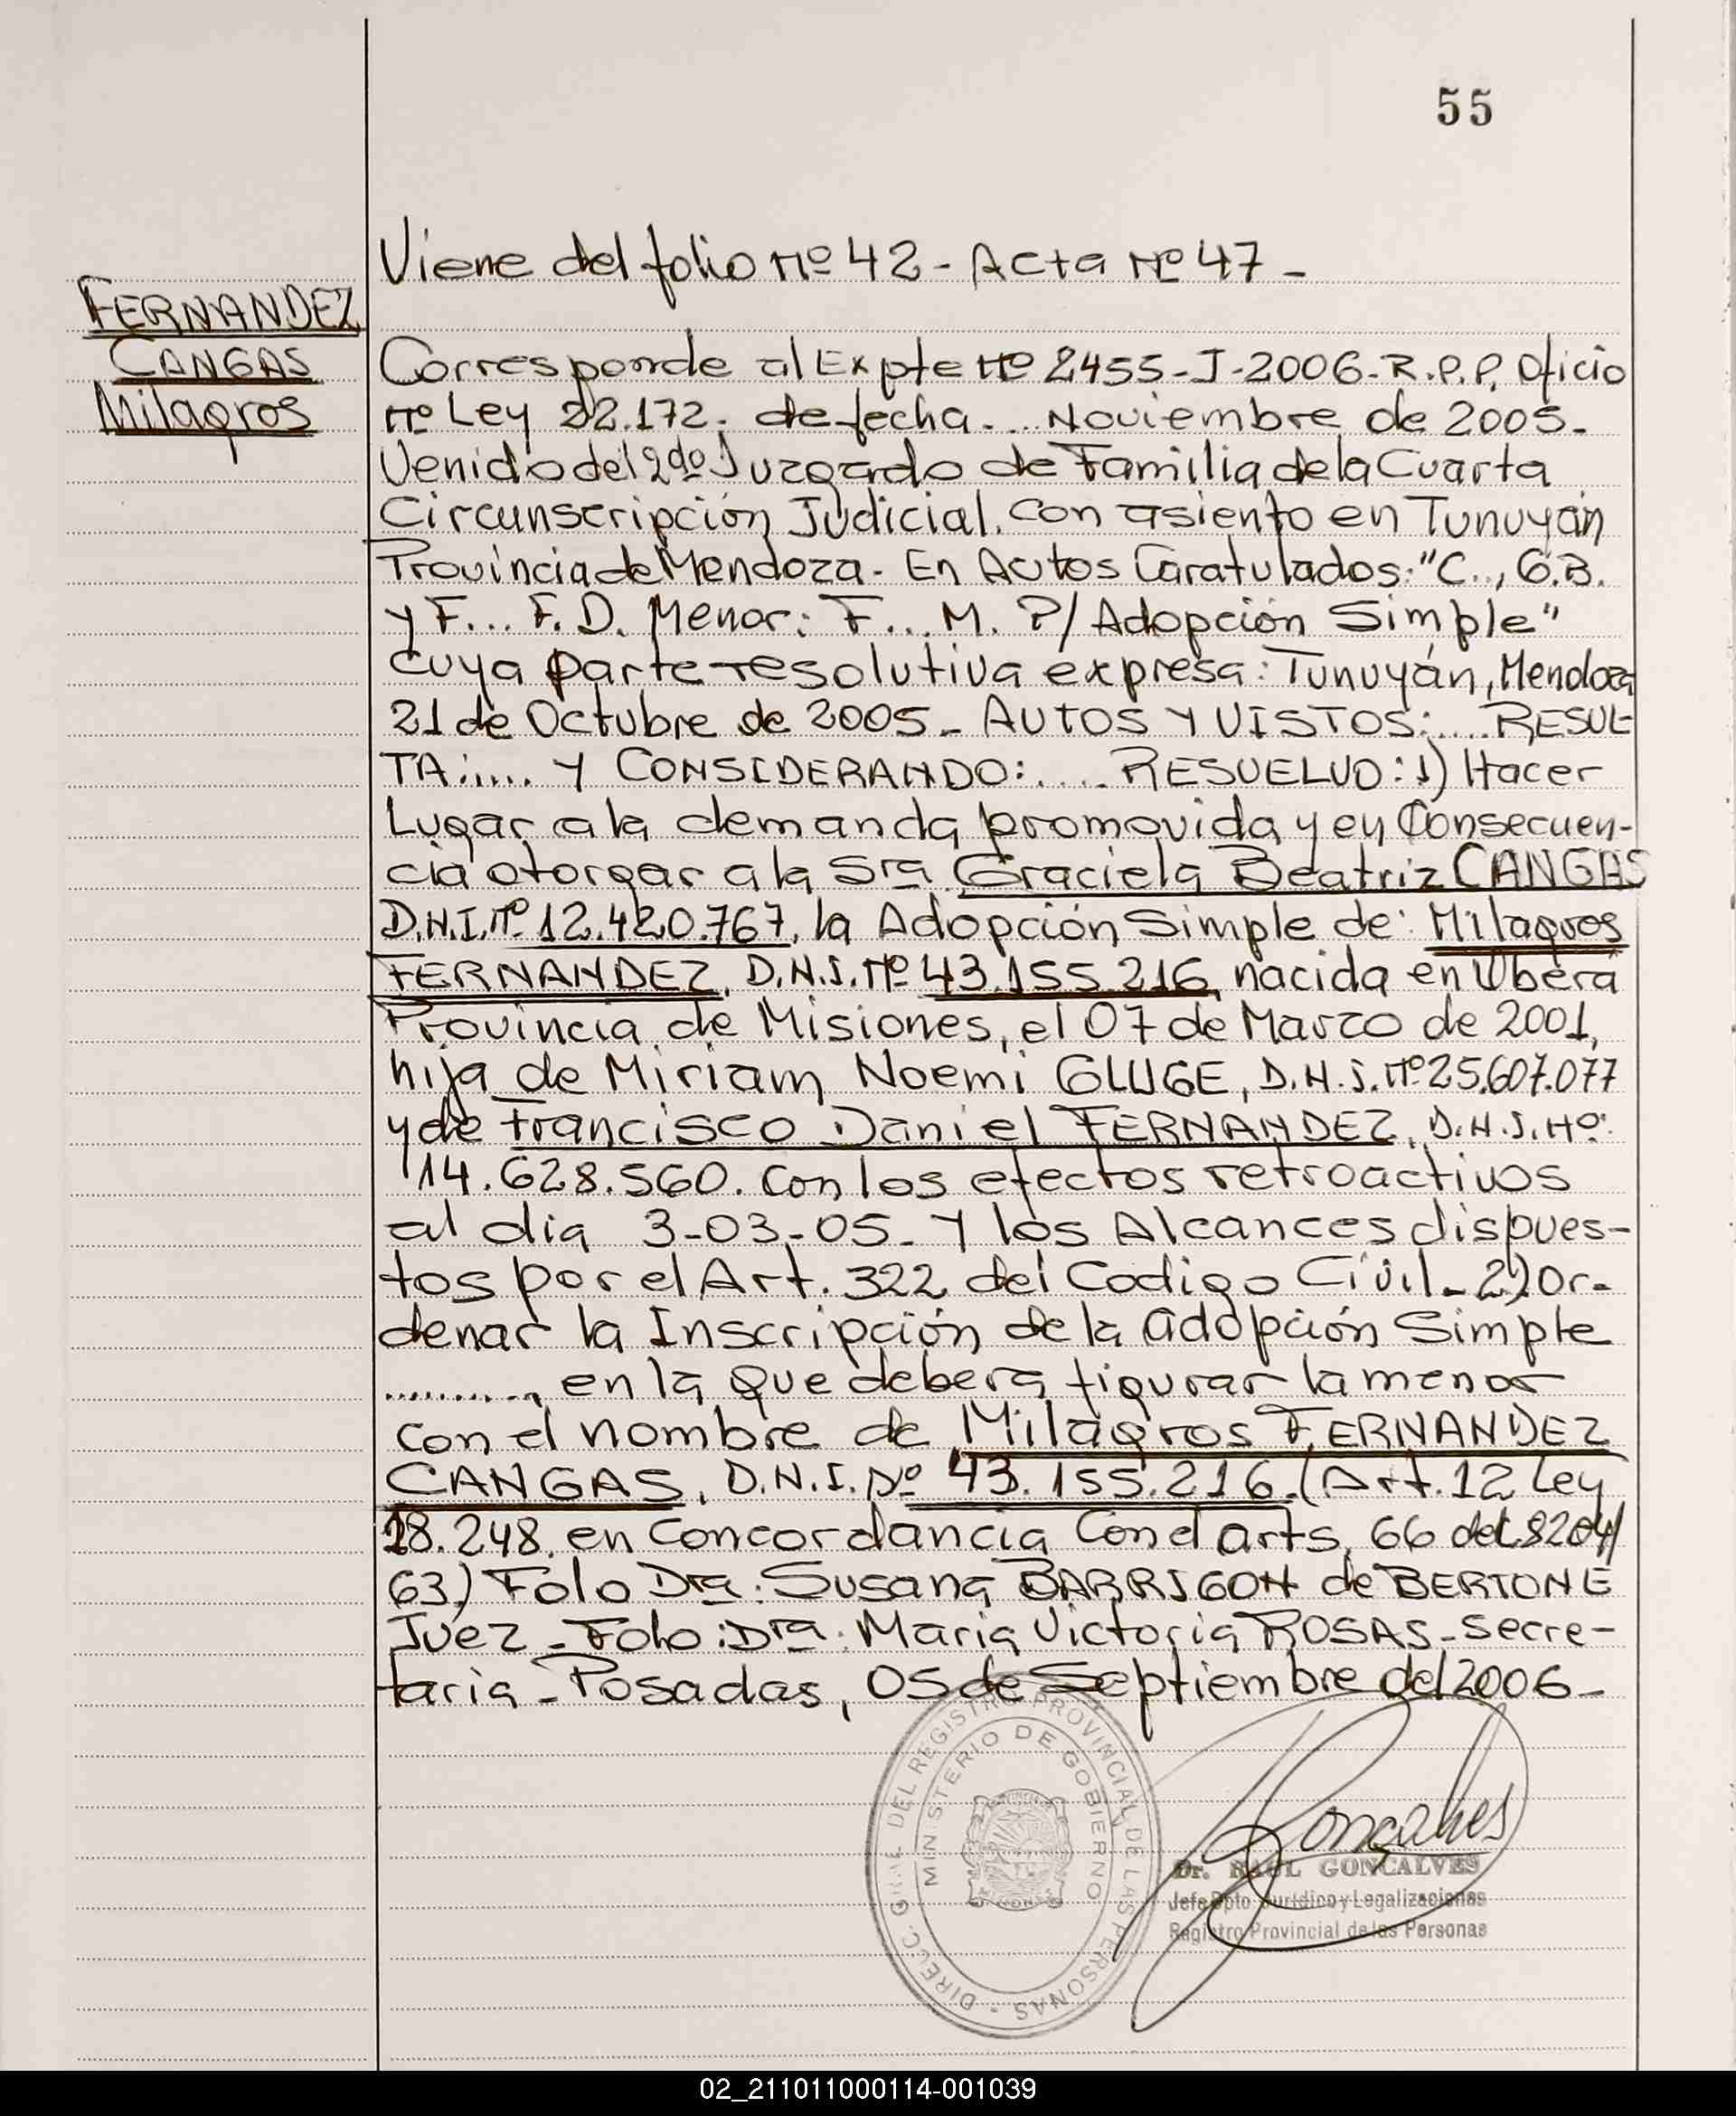 55
Viene del folio Nº 42 - Acta Nº 47 -
FERNANDEZ
CANGAS
Milagros
Corresponde al Expte Nº 2455-J-2006-R.P.P. Oficio
Nº Ley 22.172. de fecha... Noviembre de 2005.
Venido del 2do Juzgado de Familia de la Cuarta
Circunscripción Judicial. con asiento en Tunuyán
Provincia de Mendoza. En Autos Caratulados: "C.., G.B.
y F... F.D. Menor: F... M. P/ Adopción Simple"
cuya parte resolutiva expresa: Tunuyán, Mendoza
21 de Octubre de 2005_ AUTOS Y VISTOS:.... RESUL-
TA:.... Y CONSIDERANDO:.... RESUELVO: 1) Hacer
Lugar a la demanda promovida y en Consecuen-
cia otorgar a la Sra Graciela Beatriz CANGAS
D.N.I. Nº 12.420.767, la Adopción Simple de: Milagros
FERNANDEZ, D.N.I. Nº 43.155.216, nacida en Oberá
Provincia de Misiones, el 07 de Marzo de 2001,
hija de Miriam Noemi GLUGE, D.N.I. Nº 25.607.077
y de Francisco Daniel FERNANDEZ, D.N.I. Nº
14.628.560. con los efectos retroactivos
al dia 3-03-05_ Y los Alcances dispues-
tos por el Art. 322 del Codigo Civil_ 2) Or-
denar la Inscripción de la adopción Simple
..........., en la que debera figurar la menor
con el nombre de Milagros FERNANDEZ
CANGAS, D.N.I. Nº 43.155.216. (Art. 12 Ley
18.248, en Concordancia Con el arts, 66 del 8204/
63) Fdo Dra. Susana BARRIGON de BERTONE
Juez_ Fdo: Dra. Maria Victoria ROSAS - Secre-
taria_ Posadas, 05 de Septiembre del 2006_
DIRECC. GRAL. DEL REGISTRO PROVINCIAL DE LAS PERSONAS
MINISTERIO DE GOBIERNO
Gonçalves
Dr. RAUL GONCALVES
Jefe Dpto Jurídico y Legalizaciones
Registro Provincial de las Personas
02_211011000114-001039